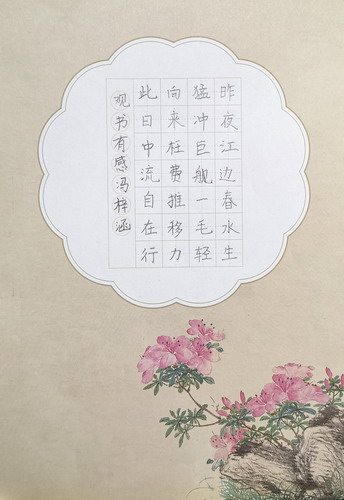 昨夜江边春水生
猛冲巨舰一毛轻
向来枉费推移力
此日中流自在行
观书有感冯梓涵